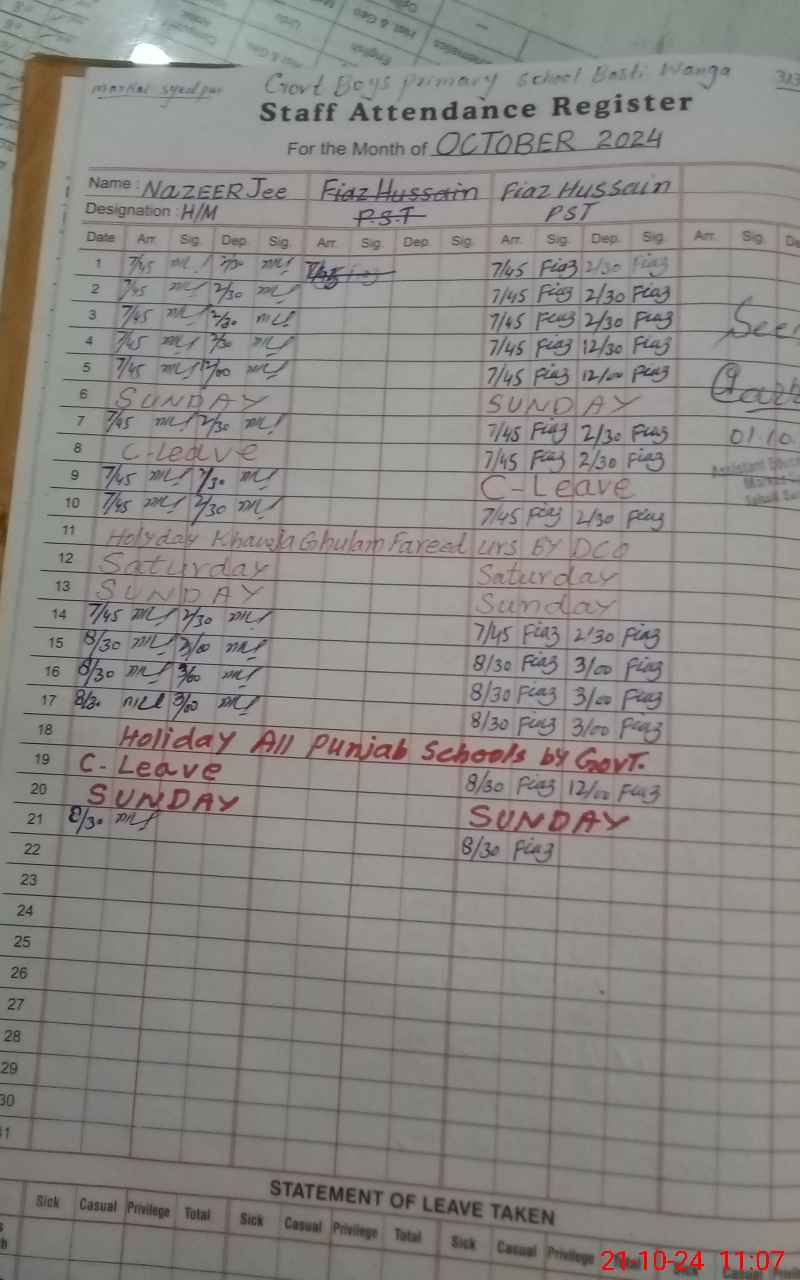 markaz syedpur Govt Boys primary school Basti Wanga 313
Staff Attendance Register
For the Month of OCTOBER 2024
Name : NAZEER Jee Fiaz Hussain Fiaz Hussain
Designation : H/M P.S.T PST
Date Arr. Sig. Dep. Sig. Arr. Sig. Dep. Sig. Arr. Sig. Dep. Sig. Arr. Sig.
1 7/45 2/30 7/45 Fiaz 2/30 Fiaz
2 7/45 2/30 7/45 Fiaz 2/30 Fiaz
3 7/45 2/30 7/45 Fiaz 2/30 Fiaz
4 7/45 2/30 7/45 Fiaz 12/30 Fiaz
5 7/45 12/00 7/45 Fiaz 12/00 Fiaz
6 SUNDAY SUNDAY
7 7/45 2/30 7/45 Fiaz 2/30 Fiaz 01.10
8 C-Leave 7/45 Fiaz 2/30 Fiaz
9 7/45 2/30 C-Leave
10 7/45 2/30 7/45 Fiaz 2/30 Fiaz
11 Holyday Khawja Ghulam Fareed urs BY DCO
12 Saturday Saturday
13 SUNDAY Sunday
14 7/45 2/30 7/45 Fiaz 2/30 Fiaz
15 8/30 3/00 8/30 Fiaz 3/00 Fiaz
16 8/30 3/00 8/30 Fiaz 3/00 Fiaz
17 8/30 3/00 8/30 Fiaz 3/00 Fiaz
18 Holiday All Punjab Schools by Govt.
19 C-Leave 8/30 Fiaz 12/00 Fiaz
20 SUNDAY SUNDAY
21 8/30 8/30 Fiaz
22
23
24
25
26
27
28
29
30
31
STATEMENT OF LEAVE TAKEN
Sick Casual Privilege Total Sick Casual Privilege Total Sick Casual Privilege Total Sick Casual
21-10-24 11:07